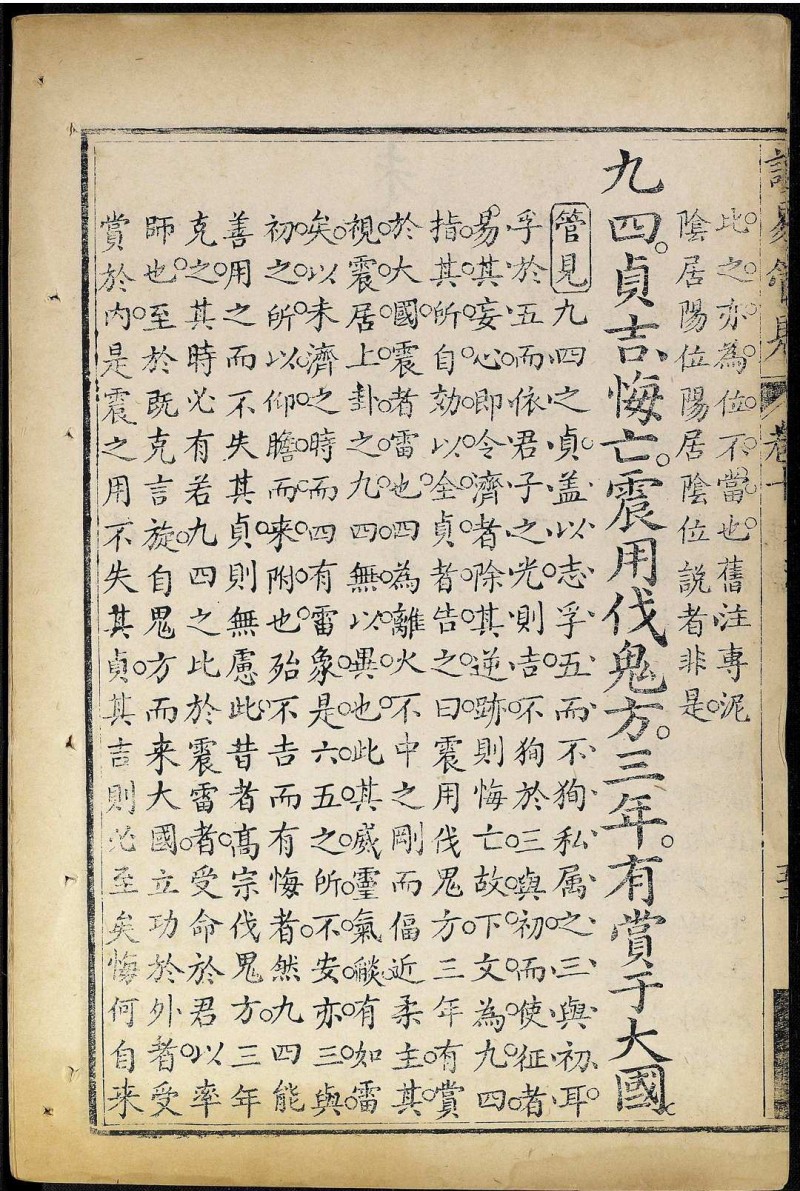 讀易管見
卷十
此之亦為位不當也舊注專泥
陰居陽位陽居陰位説者非是
九四貞吉悔亡震用伐鬼方三年有賞于大國
管見九四之貞盖以志孚五而不狥私属之三與初耳
孚於五而依君子之光則吉不狥於三與初而使征者
易其妄心即令濟者除其逆跡則悔亡故下文為九四
指其所自効以全貞者告之曰震用伐鬼方三年有賞
於大國震者雷也四為離火不中之剛而偪近柔主其
視震居上卦之九四無以異也此其威靈氣燄有如雷
矣以未濟之時而四有雷象是六五之所不安亦三與
初之所以仰瞻而来附也殆不吉而有悔者然九四能
善用之而不失其貞則無慮此昔者髙宗伐鬼方三年
克之其時必有若九四之比於震雷者受命於君以率
師也至於既克言旋自鬼方而来大國立功於外者受
賞於内是震之用不失其貞其吉則必至矣悔何自来